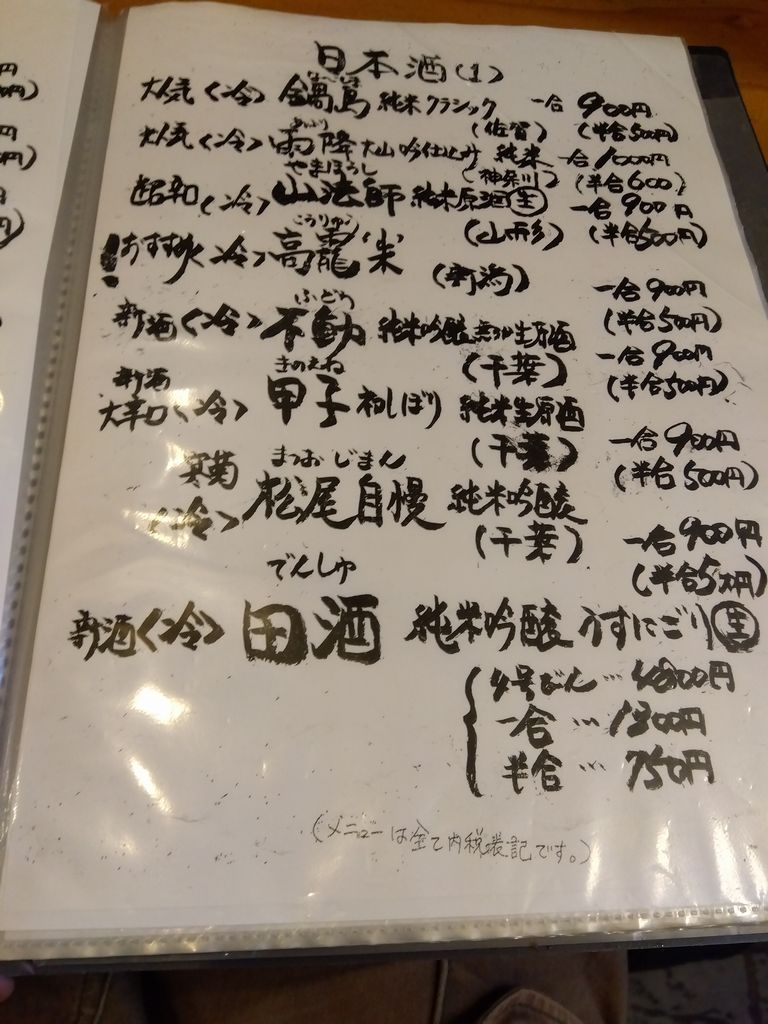 日本酒(1)
大人気〈冷〉 鍋島 純米クラシック (佐賀) 一合 900円 (半合500円)
大人気〈冷〉 あふり 雨降 大山 吟仕込み 純米 (神奈川) 一合 1000円 (半合600)
超辛口〈冷〉 やまほうし 山法師 純米原酒 生 (山形) 一合 900円 (半合500円)
!おすすめ〈冷〉 (新潟) 一合 900円 (半合500円)
新酒〈冷〉 ふどう 不動 純米吟醸 生原酒 (千葉) 一合 900円 (半合500円)
新酒 大辛口〈冷〉 きのえね 甲子 初しぼり 純米生原酒 (千葉) 一合 900円 (半合500円)
〈冷〉 まつおじまん 松尾自慢 純米吟醸 (千葉) 一合 900円 (半合500円)
でんしゅ
新酒〈冷〉 田酒 純米吟醸 うすにごり 生
4号びん…
一合…1300円
半合…750円
(メニューは全て内税表記です。)